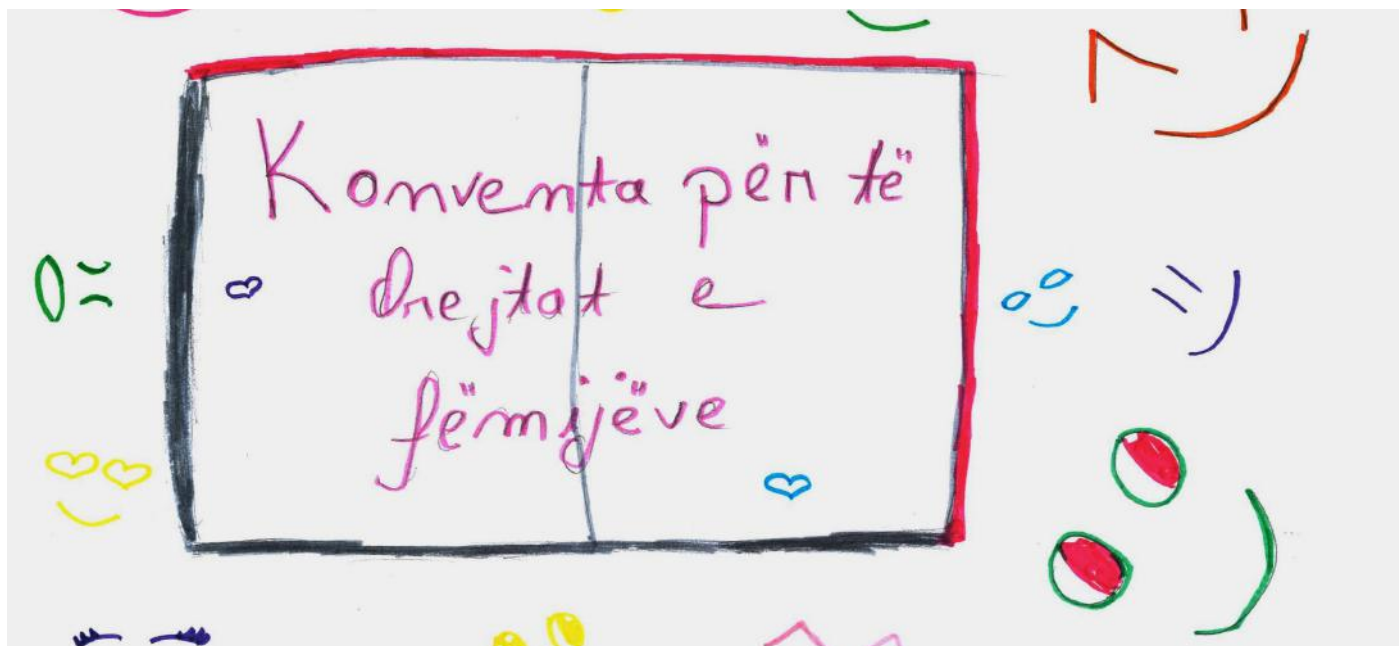 Konventa për të
drejtat e
fëmijëve